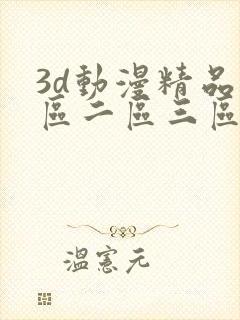 3d動漫精品
區二區三區
溫憲元